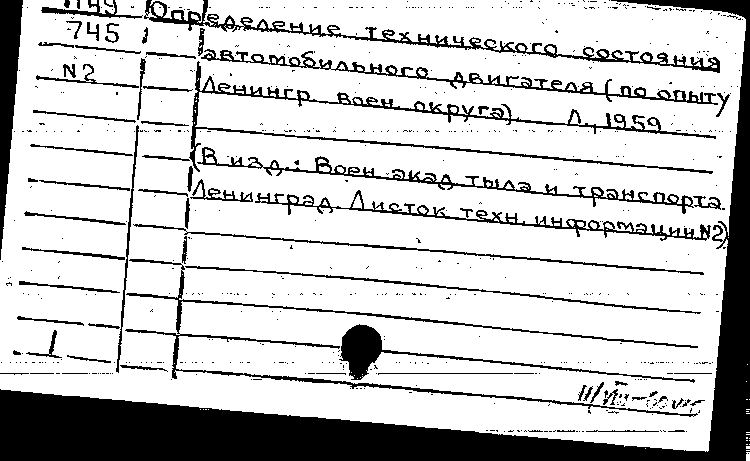 1149 Определение технического состояния
745 автомобильного двигателя (по опыту
N2 Ленингр. воен. округа). Л., 1959
(В изд.: Воен. акад. тыла и транспорта.
Ленинград. Листок техн. информации N2)
1